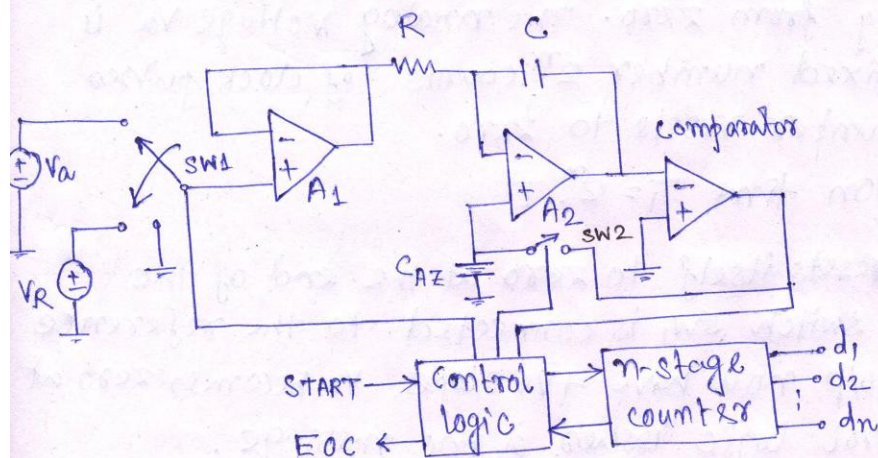 R
C
Comparator
Va
SW1
A1
A2
SW2
VR
CAZ
START
control logic
n-stage counter
d1
d2
dn
EOC